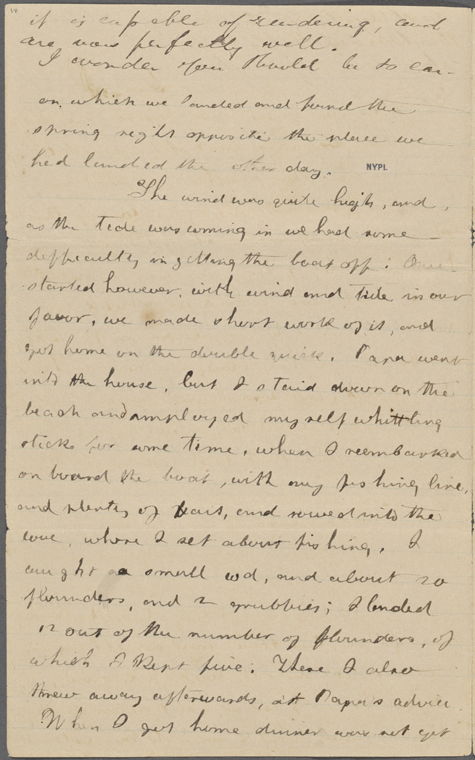 it is capable of rendering, and
are now perfectly well.
I wonder you should be so ear-
on, which we landed and found the
spring right opposite the place we
had landed the other day.
NYPL
The wind was quite high, and,
as the tide was coming in we had some
difficulty in getting the boat off: Once
started however, with wind and tide in our
favor, we made short work of it, and
got home on the double quick. Papa went
into the house, but I staid down on the
beach and amployed myself whittling
sticks for some time, when I reembarked
on board the boat, with my fishing line,
and plenty of bait, and rowed into the
cove, where I set about fishing. I
caught a small cod, and about 20
flounders, and 2 grubbies; I landed
12 out of the number of flounders, of
which I kept five. These I also
threw away afterwards, at Papa's advice.
When I got home dinner was not yet